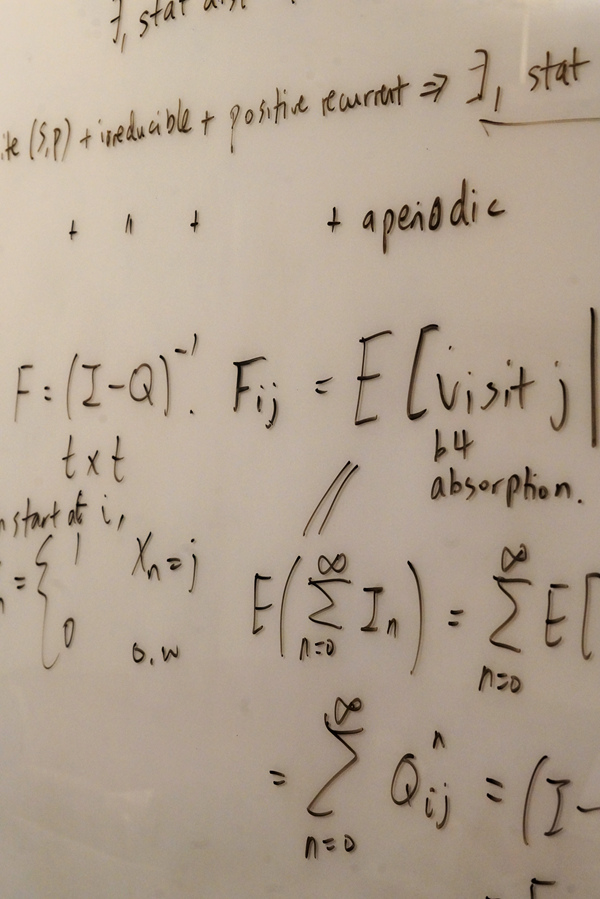 ∃, stat
ite (S,P) + irreducible + positive recurrent ⇒ ∃, stat
+ " + + aperiodic
F = (I-Q)⁻¹. Fij = E [visit j |
t x t b4
absorption.
n start at i,
= { 1 Xn = j
0 o.w
E(∑ n=0 ∞ In) = ∑ n=0 ∞ E[
= ∑ n=0 ∞ Qij n = (I-